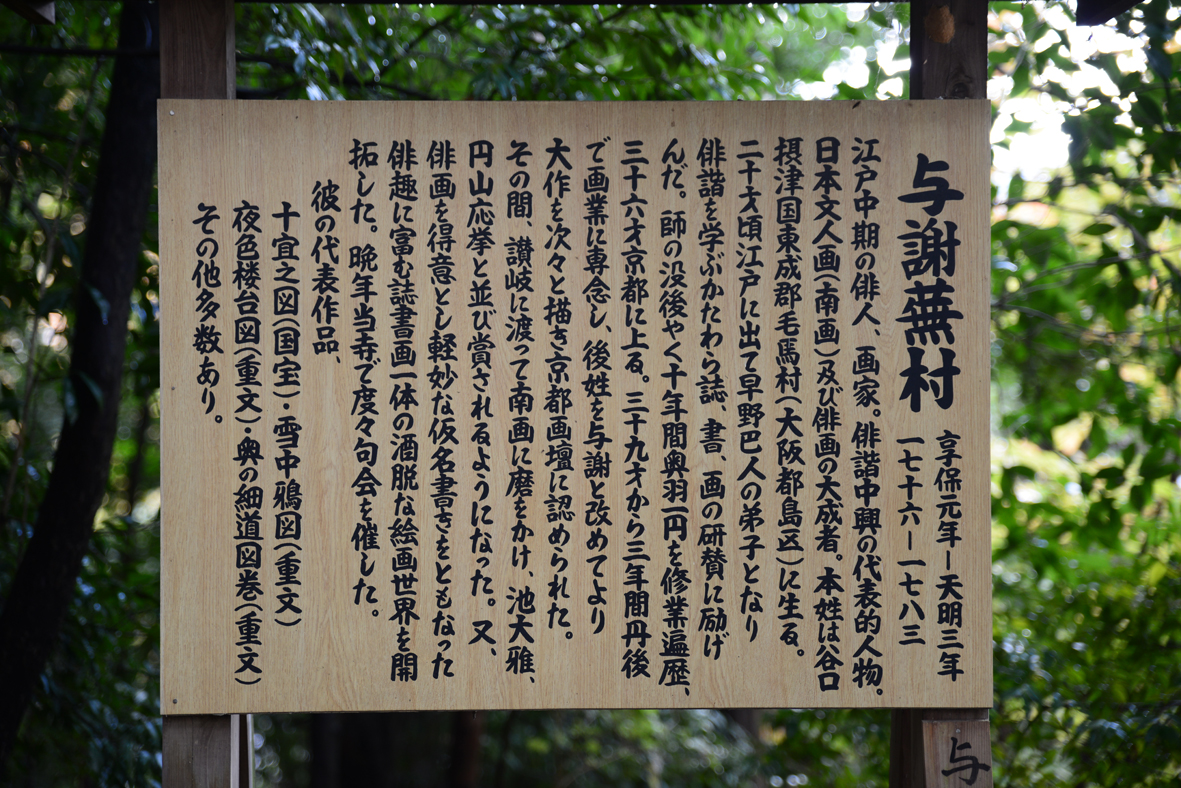 与謝蕪村
享保元年ー天明三年
一七十六ー一七八三
江戸中期の俳人、画家。俳諧中興の代表的人物。
日本文人画(南画)及び俳画の大成者。本姓は谷口
摂津国東成郡毛馬村(大阪都島区)に生る。
二十才頃江戸に出て早野巴人の弟子となり
俳諧を学ぶかたわら誌、書、画の研賛に励げ
んだ。師の没後やく十年間奥羽一円を修業遍歴、
三十六才京都に上る。三十九才から三年間丹後
で画業に専念し、後姓を与謝と改めてより
大作を次々と描き京都画壇に認められた。
その間、讃岐に渡って南画に磨をかけ、池大雅、
円山応挙と並び賞されるようになった。又、
俳画を得意とし軽妙な仮名書きをともなった
俳趣に富む誌書画一体の酒脱な絵画世界を開
拓した。晩年当寺で度々句会を催した。
彼の代表作品、
十宜之図(国宝)・雪中鴉図(重文)
夜色楼台図(重文)・奥の細道図巻(重文)
その他多数あり。
与